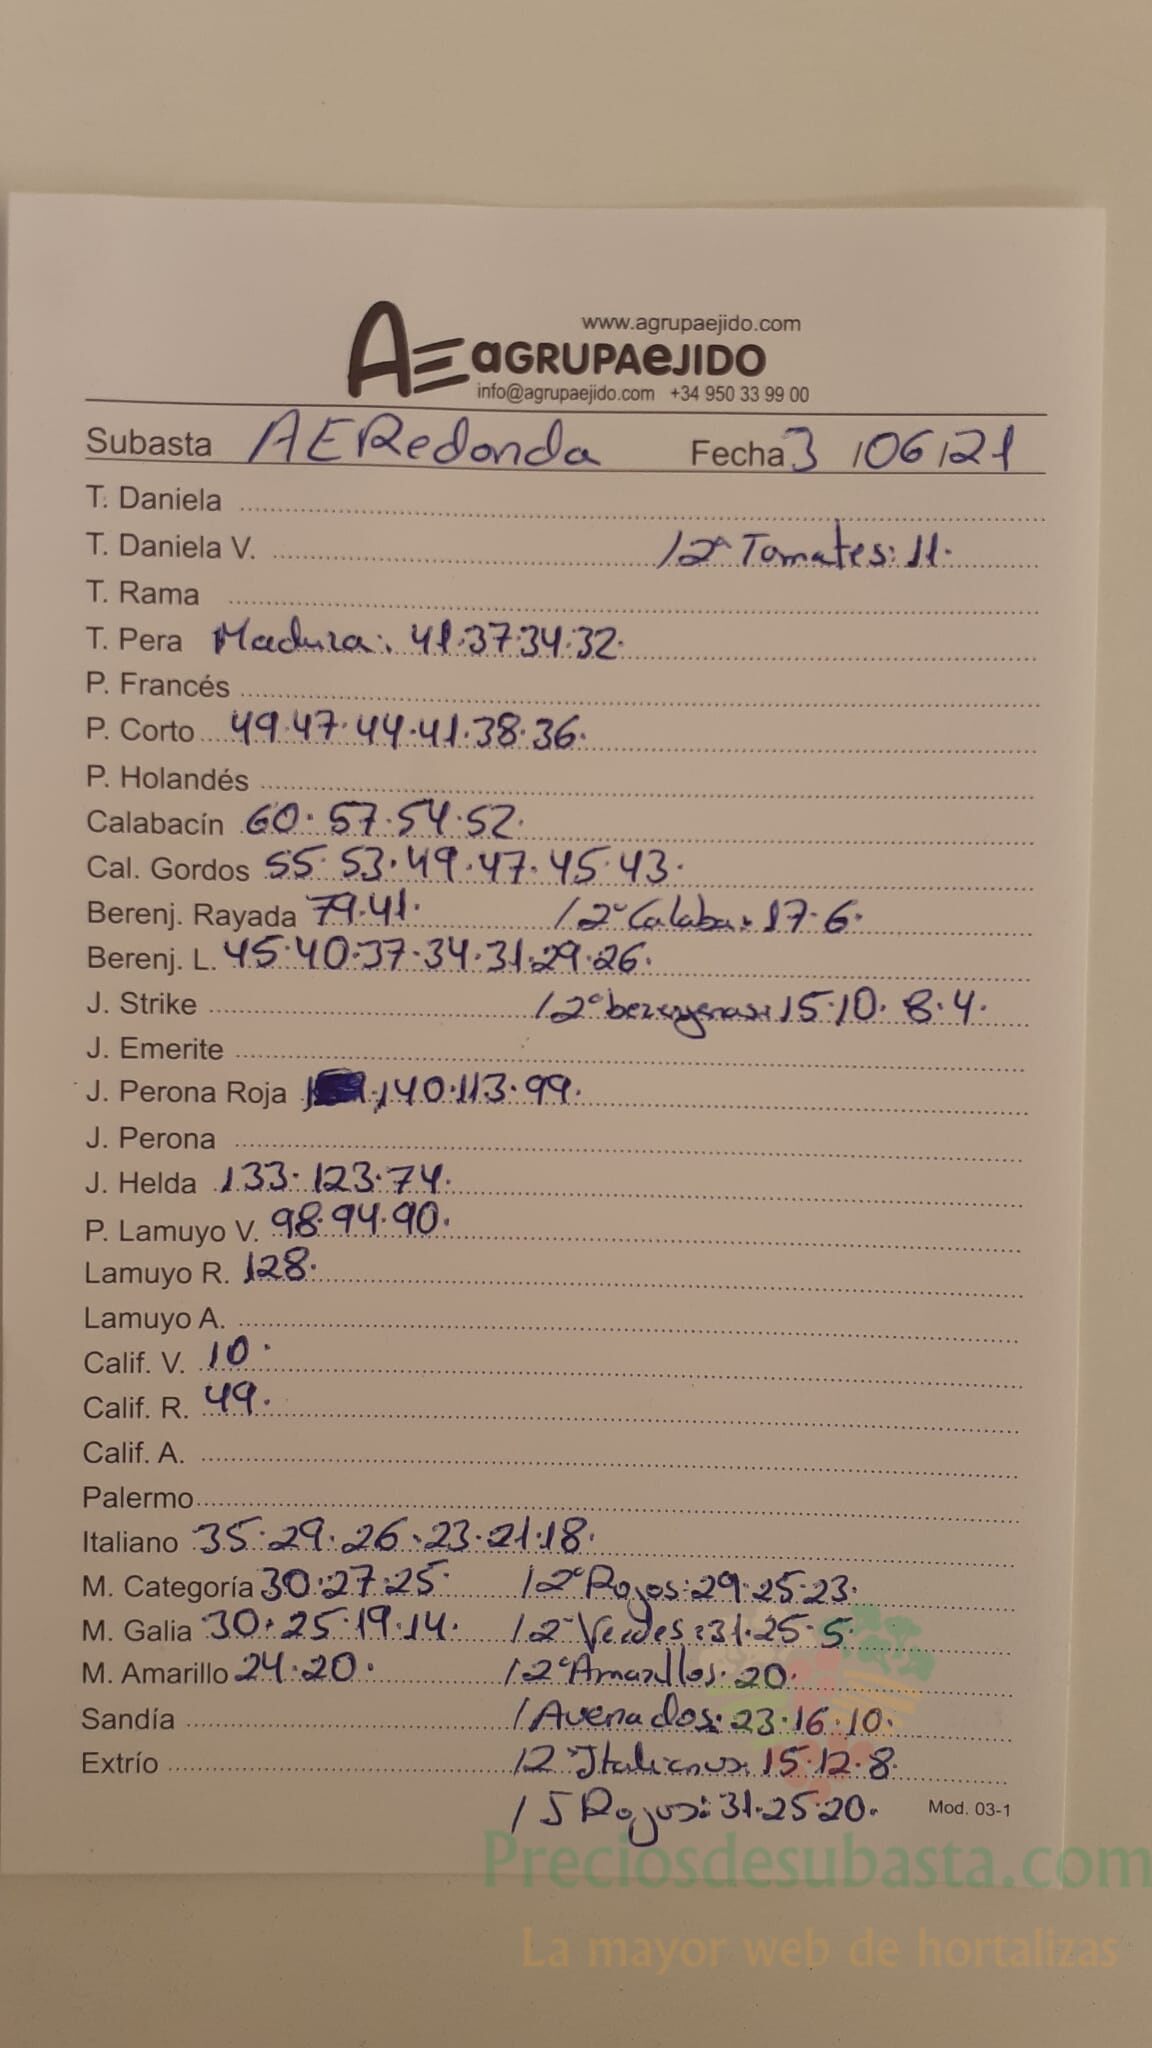 www.agrupaejido.com
AE aGRUPAeJIDO
info@agrupaejido.com +34 950 33 99 00
Subasta AERedonda Fecha 3 /06/21
T. Daniela
T. Daniela V. /2ª Tomates: 11.
T. Rama
T. Pera Madura: 41.37.34.32.
P. Francés
P. Corto 49.47.44.41.38.36.
P. Holandés
Calabacín 60.57.54.52.
Cal. Gordos 55.53.49.47.45.43.
Berenj. Rayada 79.41. /2ª Calaba: 17.6.
Berenj. L. 45.40.37.34.31.29.26.
J. Strike /2ª berengenas: 15.10.8.4.
J. Emerite
J. Perona Roja 140.113.99.
J. Perona
J. Helda 133.123.74.
P. Lamuyo V. 98.94.90.
Lamuyo R. 128.
Lamuyo A.
Calif. V. 10.
Calif. R. 49.
Calif. A.
Palermo
Italiano 35.29.26.23.21.18.
M. Categoría 30.27.25. /2ª Rojos: 29.25.23.
M. Galia 30.25.19.14. /2ª Verdes: 31.25.5.
M. Amarillo 24.20. /2ª Amarillos: 20.
Sandía /Avenados: 23.16.10.
Extrío /2ª Italianos: 15.12.8.
/5 Rojos: 31.25.20. Mod. 03-1
Preciosdesubasta.com
La mayor web de hortalizas